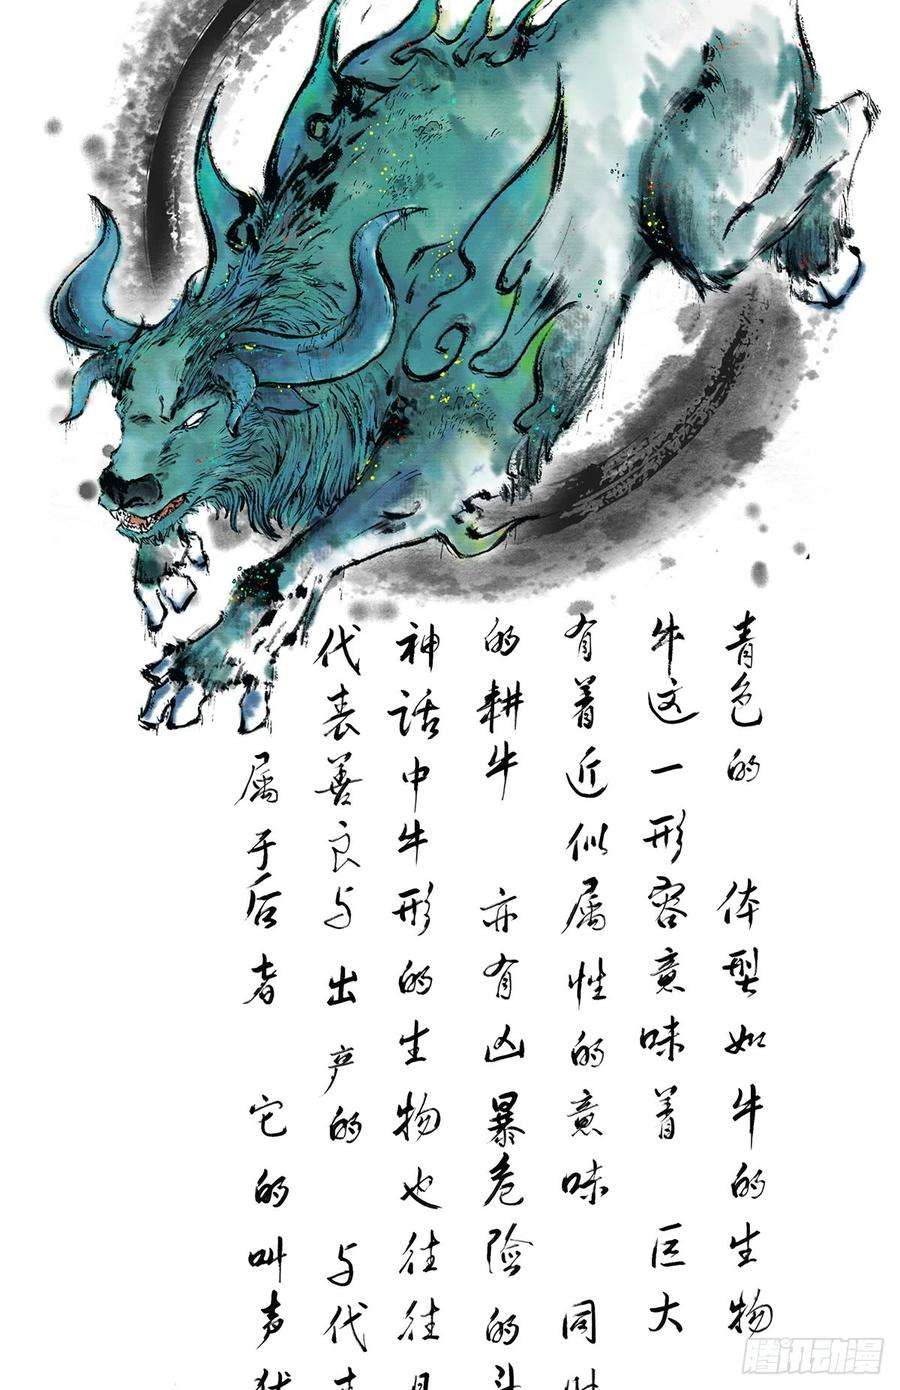 青色的 体型如牛的生物
牛这一形容意味着 巨大
有着近似属性的意味 同时
的耕牛 亦有凶暴危险的斗
神话中牛形的生物也往往
代表善良与出产的 与代表
属于后者 它的叫声犹
腾讯动漫